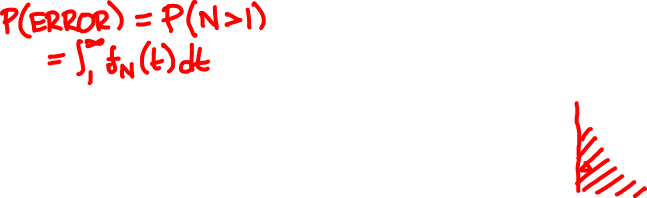 P(ERROR) = P(N>1)
= ∫₁^∞ f_N(t) dt